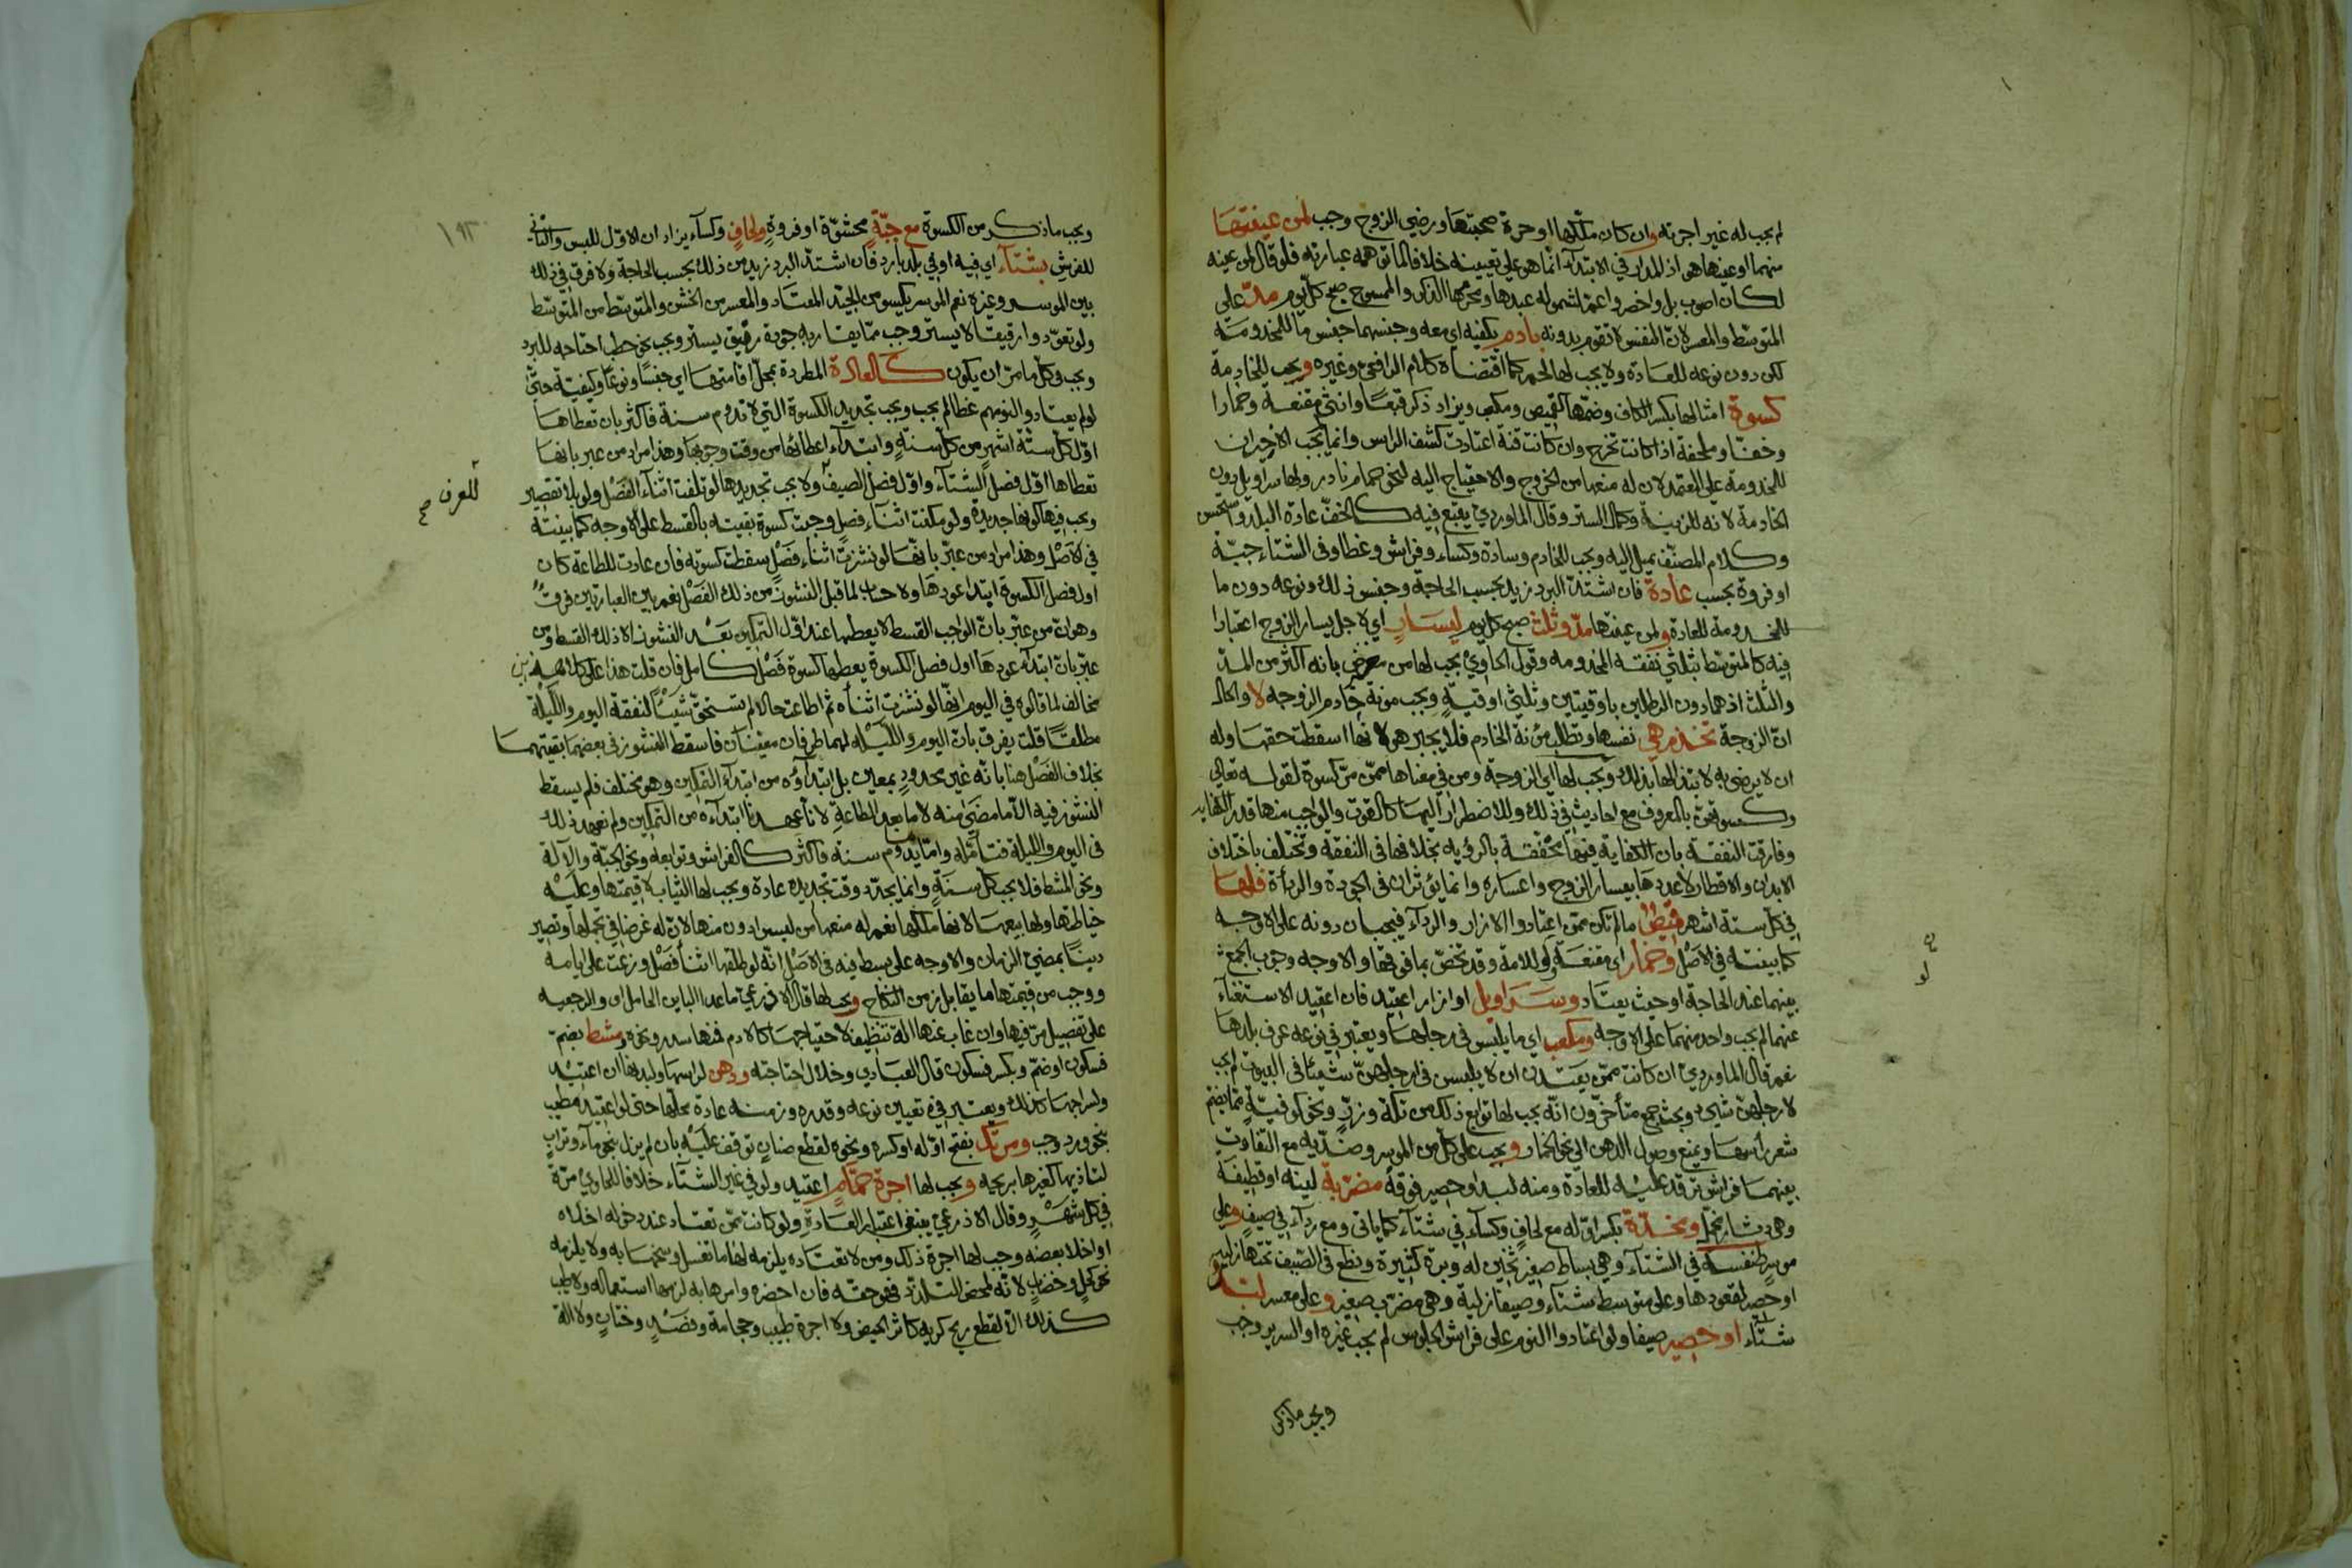 لم يجب له غير اجرته وان كان ملكها او حرة صحبتها ورضي الزوج وجب لمن عينتها
منهما او عنها هو اذ المدار في الابتداء انما هو على تعيينه خلافا لما توهمه عبارته فلو قال لمن عينه
لكان اصوب بل واخصر واعم لشموله عبدها ومحرمها الذكر والممسوح صبح كل يوم مد على
المتوسط والمعسر لان النفس لا تقوم بدونه بادم يكفيه اي معه وجنسهما جنس ما للمخدومة
لكن دون نوعه للعادة ولا يجب لها لحم كما اقتضاه كلام الرافعي وغيره ويجب للخادمة
كسوة امثالها بكسر الكاف وضمها كقميص ومكعب ويزاد ذكر قبعا وانثى مقنعة وخمارا
وخفا وملحفة اذا كانت تخرج وان كانت قنة اعتادت كشف الراس وانما يجب الاخيران
للمخدومة على المعتمد لان له منعها من الخروج والاحتياج اليه لنحو حمام نادر ولها سراويل دون
الخادمة لانه للزينة وكمال الستر وقال الماوردي يعتبر فيه كالخف عادة البلد واستحسن
وكلام المصنف يميل اليه ويجب للخادم وسادة وكساء وفراش وغطا وفي الشتاء جبة
او فروة بحسب عادة فان اشتد البرد زيد بحسب الحاجة وجنس ذلك ونوعه دون ما
للمخدومة للعادة ولمن عينتها مد وثلث صبح كل يوم ليسار اي لاجل يسار الزوج اعتبارا
فيه كالمتوسط بثلثي نفقة المخدومه وقول الحاوي يجب لها من معرض بانه اكثر من المد
والثلث اذ هما دون الرطلين باوقيتين وثلثي اوقية ويجب مونة خادم الزوجه لا والحال
ان الزوجة تخدم هي نفسها وتطلب مؤنة الخادم فلا يجبر هو لانها اسقطت حقها وله
ان لا يرضى به لابتذالها بذلك ويجب لها اي الزوجة ومن في معناها ممن مر كسوة لقوله تعالى
وكسوتهن بالمعروف مع احاديث في ذلك وللاضطرار اليها كالقوت والواجب منها قدر الكفاية
وفارقت النفقة بان الكفاية فيها محققة بالرؤية بخلافها في النفقة وتختلف باختلاف
الابدان والاقطار لا عددها بيسار الزوج واعساره وانما يؤثران في الجودة والرداءة فلها
في كل ستة اشهر قميص ما لم تكن ممن اعتادوا الازار والرداء فيجبان دونه على الاوجه
كما بينته في الاصل وخمار اي مقنعة ولو للامة وقد تخص بما فوقها والاوجه وجوب الجمع
بينهما عند الحاجة او حيث يعتاد وسراويل او ازار اعتيد فان اعتيد الاستغناء
عنهما لم يجب واحد منهما على الاوجه ومكعب اي ما يلبس في رجلها ويعتبر في نوعه عرف بلدها
نعم قال الماوردي ان كانت ممن يعتدن ان لا يلبسن في ارجلهن شيئا في البيوت لم يجب
لارجلهن شيء وبحث جمع متأخرون انه يجب لها توابع ذلك من تكة وزر ونحو كوفية مما يضم
شعر رأسها ويمنع وصول الدهن الى نحو الخمار ويجب على كل من الموسر وضديه مع التفاوت
بينهما فراش ترقد عليه للعادة ومنه لبد او حصير فوقه مضربة لينة او قطيفة
وهي دثار مخمل ومخدة بكسر اوله مع لحاف وكساء في شتاء كما ياتي ومع رداء في صيف وعلى
موسر طنفسة في الشتاء وهي بساط صغير ثخين له وبرة كثيرة ونطع في الصيف تحتها زلية
او حصر لقعودها وعلى متوسط شتاء وصيفا زلية وهي مضرب صغير وعلى معسر لبد
شتاء او حصير صيفا ولو اعتادوا النوم على فراش الجلوس لم يجب غيره او السرير وجب
ويجب ما ذكر
لو
١٩٣
ويجب ما ذكر من الكسوة مع جبة محشوة او فروة ولحاف وكساء يزاد ان الاول للبس والثاني
للفرش بشتاء اي فيه او في بلد بارد فان اشتد البرد زيد من ذلك بحسب الحاجة ولا فرق في ذلك
بين الموسر وغيره نعم الموسر يكسو من الجيد المعتاد والمعسر من الخشن والمتوسط من المتوسط
ولو تعودوا رقيقا لا يستر وجب مما يقاربه جودة رقيق يستر ويجب نحو حطب احتاجه للبرد
ويجب في كل ما مر ان يكون كالعادة المطردة بمحل اقامتها اي جنسا ونوعا وكيفية حتى
لو لم يعتادوا لنومهم غطا لم يجب ويجب تجديد الكسوة التي لا تدوم سنة فاكثر بان تعطاها
اول كل ستة اشهر من كل سنة وابتداء اعطائها من وقت وجوبها وهذا مراد من عبر بانها
تعطاها اول فصل الشتاء واول فصل الصيف ولا يجب تجديدها لو تلفت اثناء الفصل ولو بلا تقصير
للعرف صح
ويجب فيها كونها جديدة ولو مكنت اثناء فصل وجبت كسوة بقيته بالقسط على الاوجه كما بينته
في الاصل وهذا مراد من عبر بانها لو نشزت اثناء فصل سقطت كسوته فان عادت للطاعة كان
اول فصل الكسوة ابتدا عودها ولا حساب لما قبل النشوز من ذلك الفصل نعم بين العبارتين فرق
وهو ان من عبر بان الواجب القسط لا يعطيها عند اول التمكين بعد النشوز الا ذلك القسط ومن
عبر بان ابتداء عودها اول فصل الكسوة يعطيها كسوة فصل كامل فان قلت هذا على كلا هذين
مخالف لما قالوه في اليوم انها لو نشزت اثناه ثم اطاعت حالا لم تستحق شيئا لنفقة اليوم والليلة
مطلقا قلت يفرق بان اليوم والليلة لهما طرفان معينان فاسقط النشوز في بعضهما بقيتهما
بخلاف الفصل هنا بانه غير محدود بمعين بل ابتداؤه من ابتداء التمكين وهو مختلف فلم يسقط
النشوز فيه الا ما مضى منه لا ما بعد الطاعة لانا عهدنا ابتداءه من التمكين ولم نعهد ذلك
في اليوم والليلة فتامله واما ما يدوم سنة فاكثر كالفراش وتوابعه ونحو الجبة والآلة
ونحو المشط فلا يجب كل سنة وانما يجدد وقت تجديده عادة ويجب لها الثياب لا قيمتها وعليه
خياطتها ولها بيعها لانها ملكها نعم له منعها من لبس ادون منها لان له غرضا في تجملها وتصير
دينا بمضي الزمان والاوجه على بسط فيه في الاصل انه لو طلقها اثنا فصل وزعت على ايامه
ووجب من قيمتها ما يقابل زمن النكاح ويجب لها قال الاذرعي ما عدا البائن الحامل اي والرجعيه
على تفصيل مر فيها وان غاب عنها آلة تنظيف لاحتياجها كالادم فمنها سدر ونحوه ومشط بضم
فسكون او ضم وبكسر فسكون قال العبادي وخلال احتاجته ودهن لراسها ولبدنها ان اعتيد
ولسراجها كذلك ويعتبر في تعيين نوعه وقدره وزمنه عادة محلها حتى لو اعتيد مطيب
بنحو ورد وجب ومرتك بفتح اوله او كسره ونحوه لقطع صنان توقف عليه بان لم يزل بنحو ماء وتراب
لتاذيها كغيرها بريحه ويجب لها اجرة حمام اعتيد ولو في غير الشتاء خلافا للحاوي مرة
في كل شهر وقال الاذرعي ينبغي اعتبار العادة ولو كانت ممن تعتاد عند دخوله اخلاه
او اخلا بعضه وجب لها اجرة ذلك ومن لا تعتاده يلزمه لها ما تغسل وسخها به ولا يلزمه
نحو كحل وخضاب لانه لمحض التلذذ فهو حقه فان احضره وامرها به لزمها استعماله ولا طيب
كذلك الا لقطع ريح كريه كاثر الحيض ولا اجرة طبيب وحجامة وفصد وختان ولا آلة